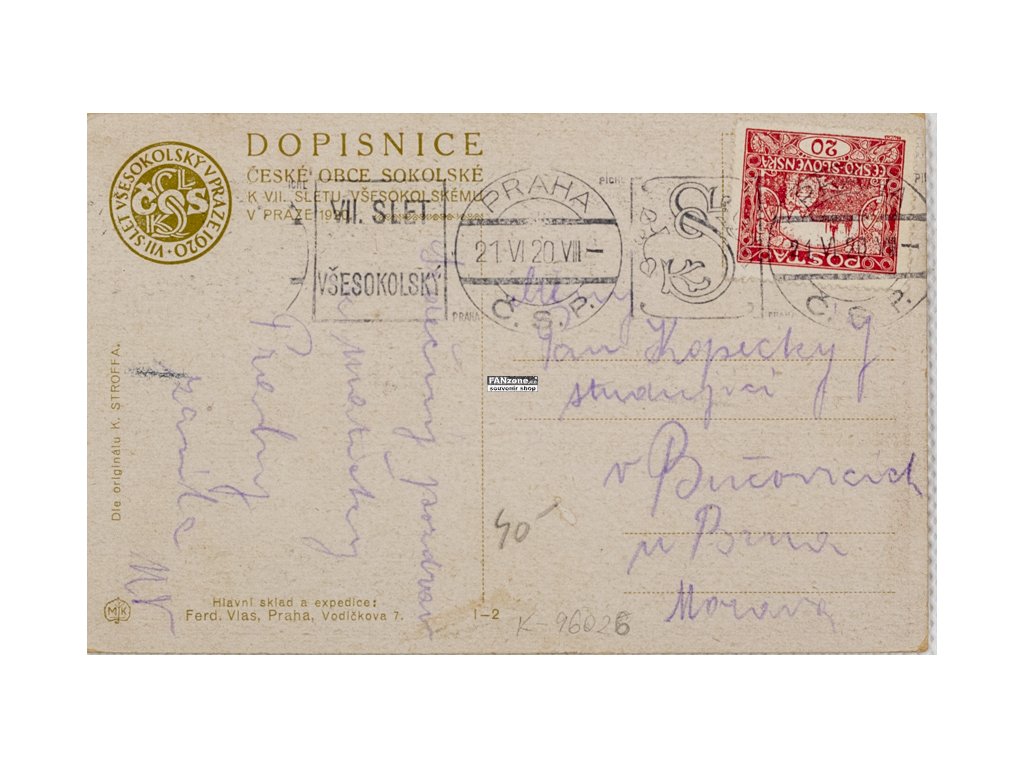 VII. SLET VŠESOKOLSKÝ V PRAZE 1920
ČOS
DOPISNICE
ČESKÉ OBCE SOKOLSKÉ
K VII. SLETU VŠESOKOLSKÉMU
V PRAZE 1920
VII. SLET
VŠESOKOLSKÝ
PRAHA
21·VI 20·VIII–
Č. S. P.
PRAHA
21 VI 20 VIII–
Č. S. P.
20
ČESKO-SLOVENSKÁ
POŠTA
Srdečný pozdrav
z matičky
Prahy
Jan Kopecký
studující
v Bučovicích
u Brna
Morava
FANzone.cz
souvenir shop
40
K-96026
Dle originálu K. STROFFA.
MK
Hlavní sklad a expedice:
Ferd. Vlas, Praha, Vodičkova 7.
I–2